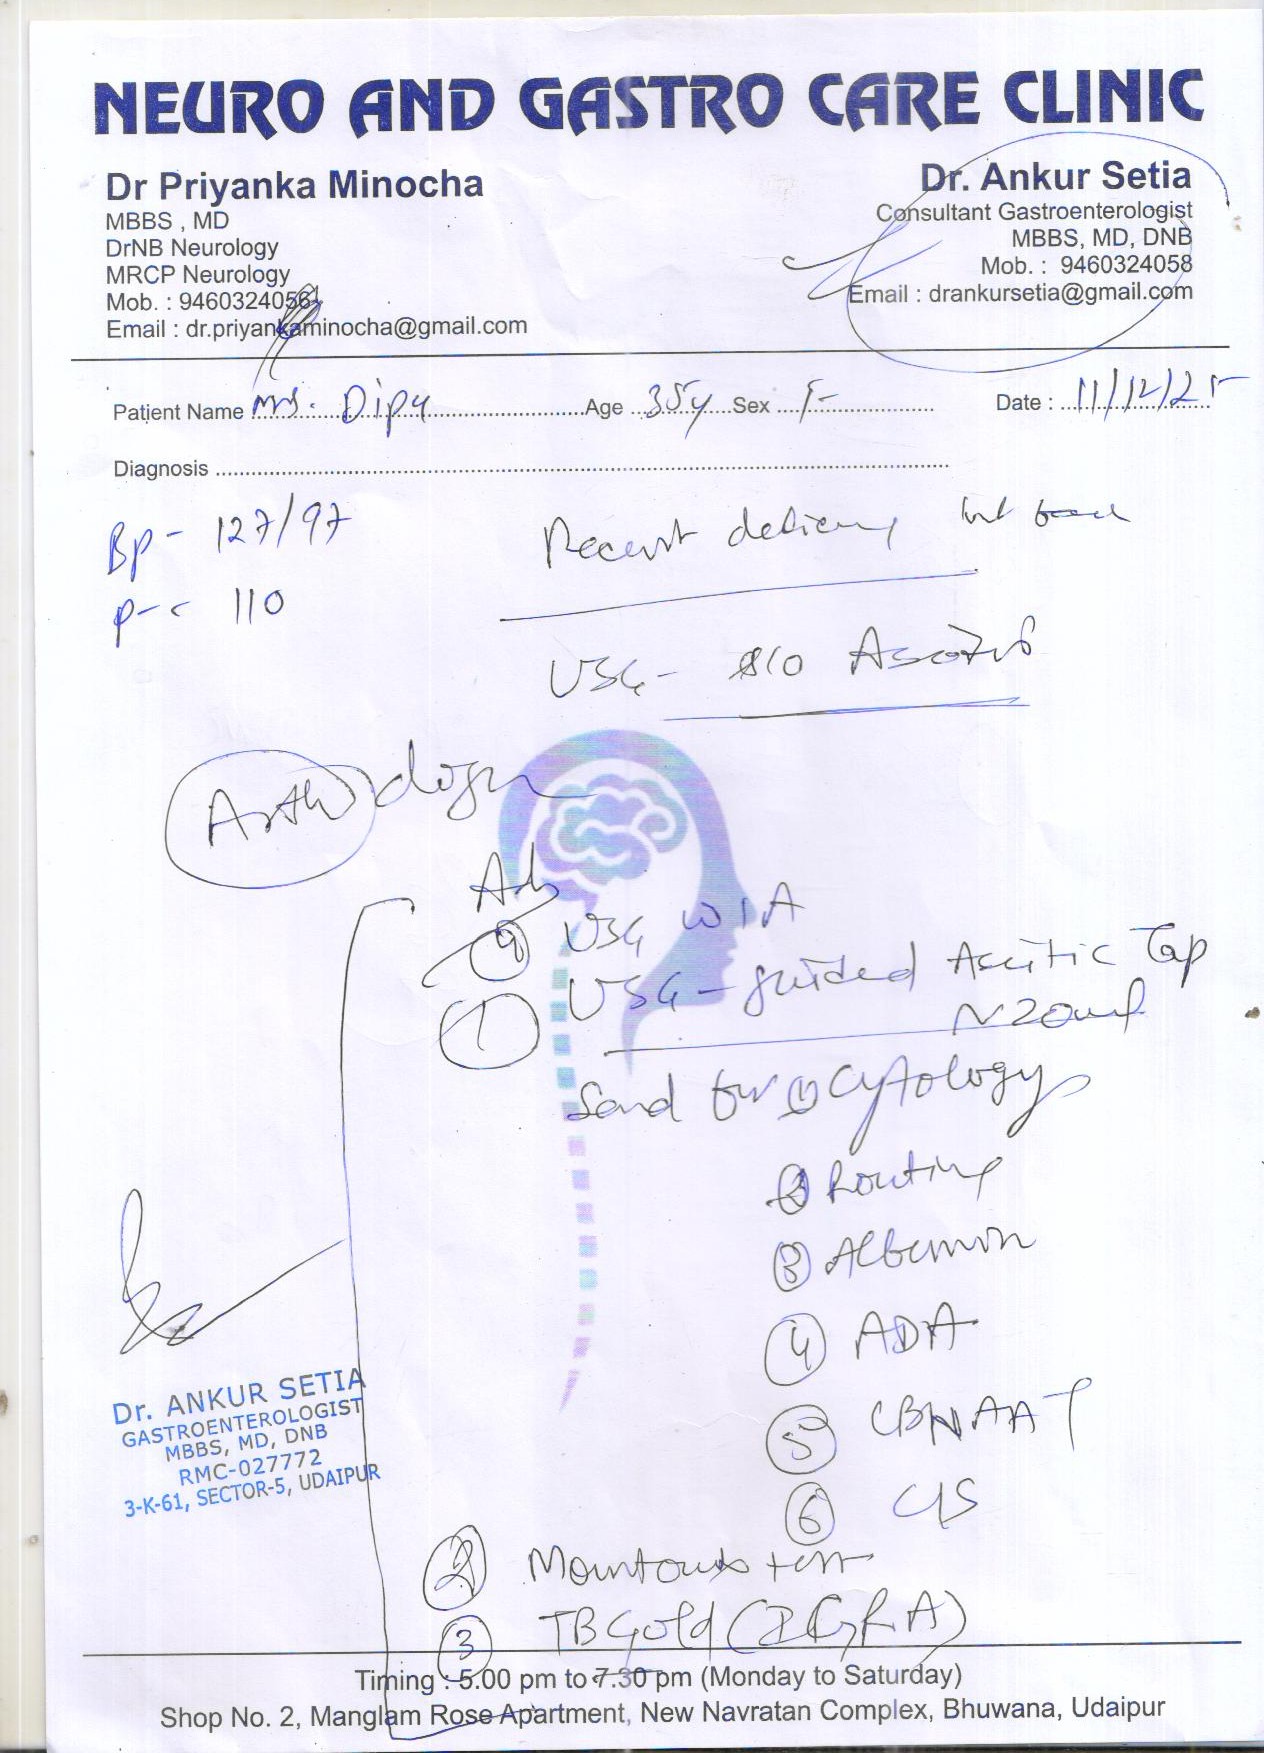 NEURO AND GASTRO CARE CLINIC
Dr Priyanka Minocha
MBBS , MD
DrNB Neurology
MRCP Neurology
Mob. : 9460324056
Email : dr.priyankaminocha@gmail.com
Dr. Ankur Setia
Consultant Gastroenterologist
MBBS, MD, DNB
Mob. : 9460324058
Email : drankursetia@gmail.com
Patient Name Mrs. Dipu Age 35y Sex F Date : 11/12/25
Diagnosis
Bp - 127/97
110
Recent delivery
USG - S/O Ascites
Adv
4 USG W/A
1 USG-guided Ascitic Tap
~20ml
Send for 1 Cytology
2 Routine
3 Albumin
4 ADA
5 CBNAAT
6 C/S
2 Mountoux test
3 TB Gold (IGRA)
Dr. ANKUR SETIA
GASTROENTEROLOGIST
MBBS, MD, DNB
RMC-027772
3-K-61, SECTOR-5, UDAIPUR
Timing : 5.00 pm to 7.30 pm (Monday to Saturday)
Shop No. 2, Manglam Rose Apartment, New Navratan Complex, Bhuwana, Udaipur